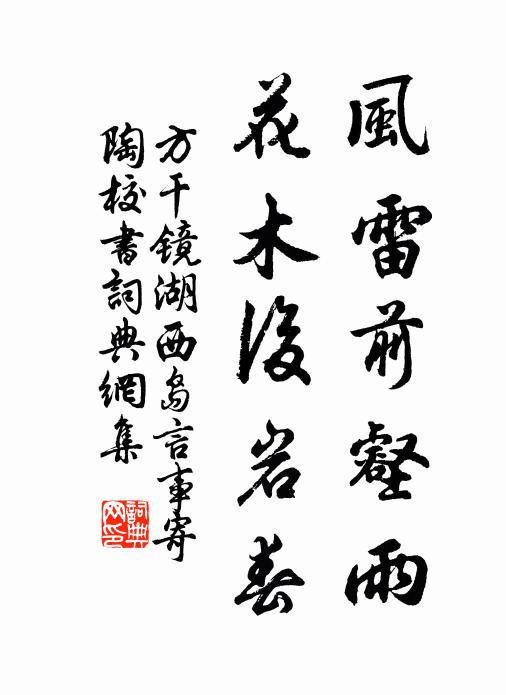 風雷前壑雨
花木後岩春
方干镜湖西岛言事寄
陶校書詞典網集
詞典
网印